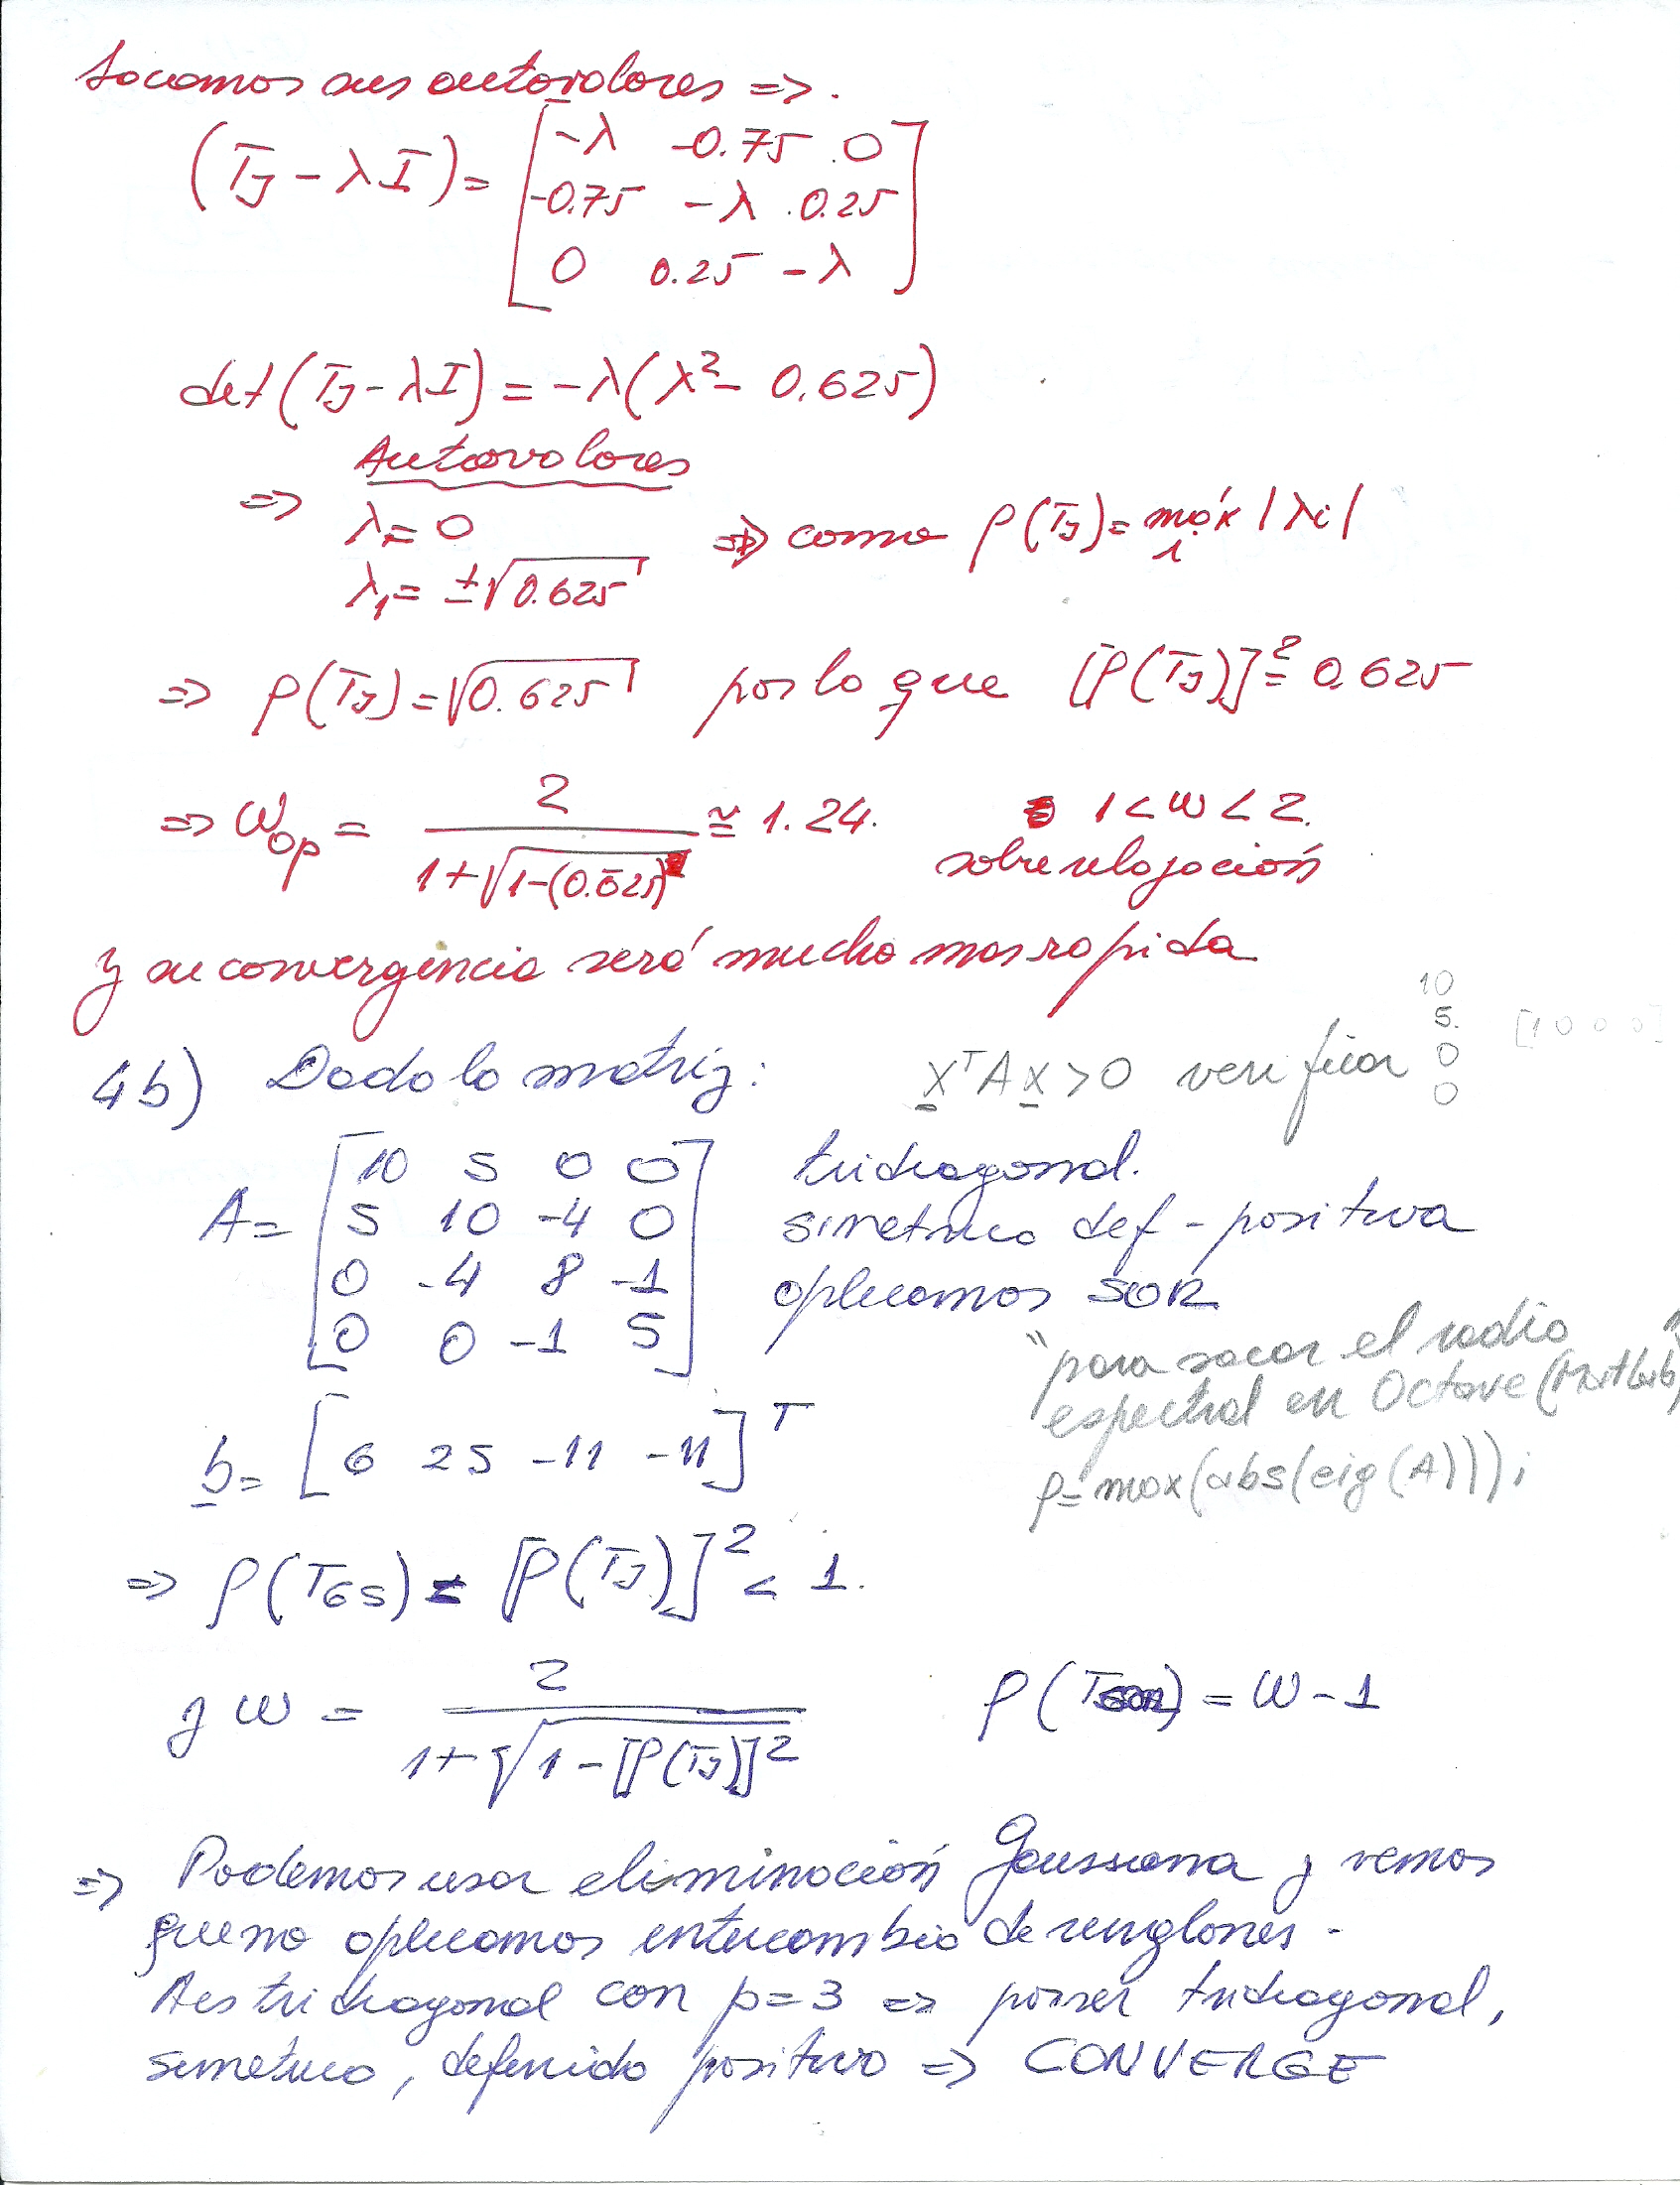 Sacamos sus autovalores =>.
(TJ - λI) = [ -λ -0.75 0
-0.75 -λ 0.25
0 0.25 -λ ]
det(TJ - λI) = -λ(λ² - 0.625)
Autovalores
=> λ = 0 => como ρ(TJ) = máx |λi|
i
λ1 = ±√0.625
=> ρ(TJ) = √0.625 por lo que [ρ(TJ)]² = 0.625
=> ωop = 2 / (1+√(1-(0.625))) ≅ 1.24. 1 < ω < 2.
sobrerelajación
y su convergencia será mucho mas rapida
4b) Dada la matriz: xᵀAx > 0 verificar
10
5.
0
0
[1 0 0 0]
A = [ 10 5 0 0 tridiagonal.
5 10 -4 0 simetrica def - positiva
0 -4 8 -1 aplicamos SOR
0 0 -1 5 ]
"para sacar el radio
espectral en Octave (Matlab)"
ρ = max(abs(eig(A)));
b = [6 25 -11 -11]ᵀ
=> ρ(TGS) = [ρ(TJ)]² < 1.
y ω = 2 / (1+√(1-[ρ(TJ)]²)) ρ(TSOR) = ω - 1
=> Podemos usar eliminación Gaussiana y vemos
que no aplicamos intercambio de renglones -
A es tridiagonal con p=3 => por ser tridiagonal,
simetrica, definida positiva => CONVERGE